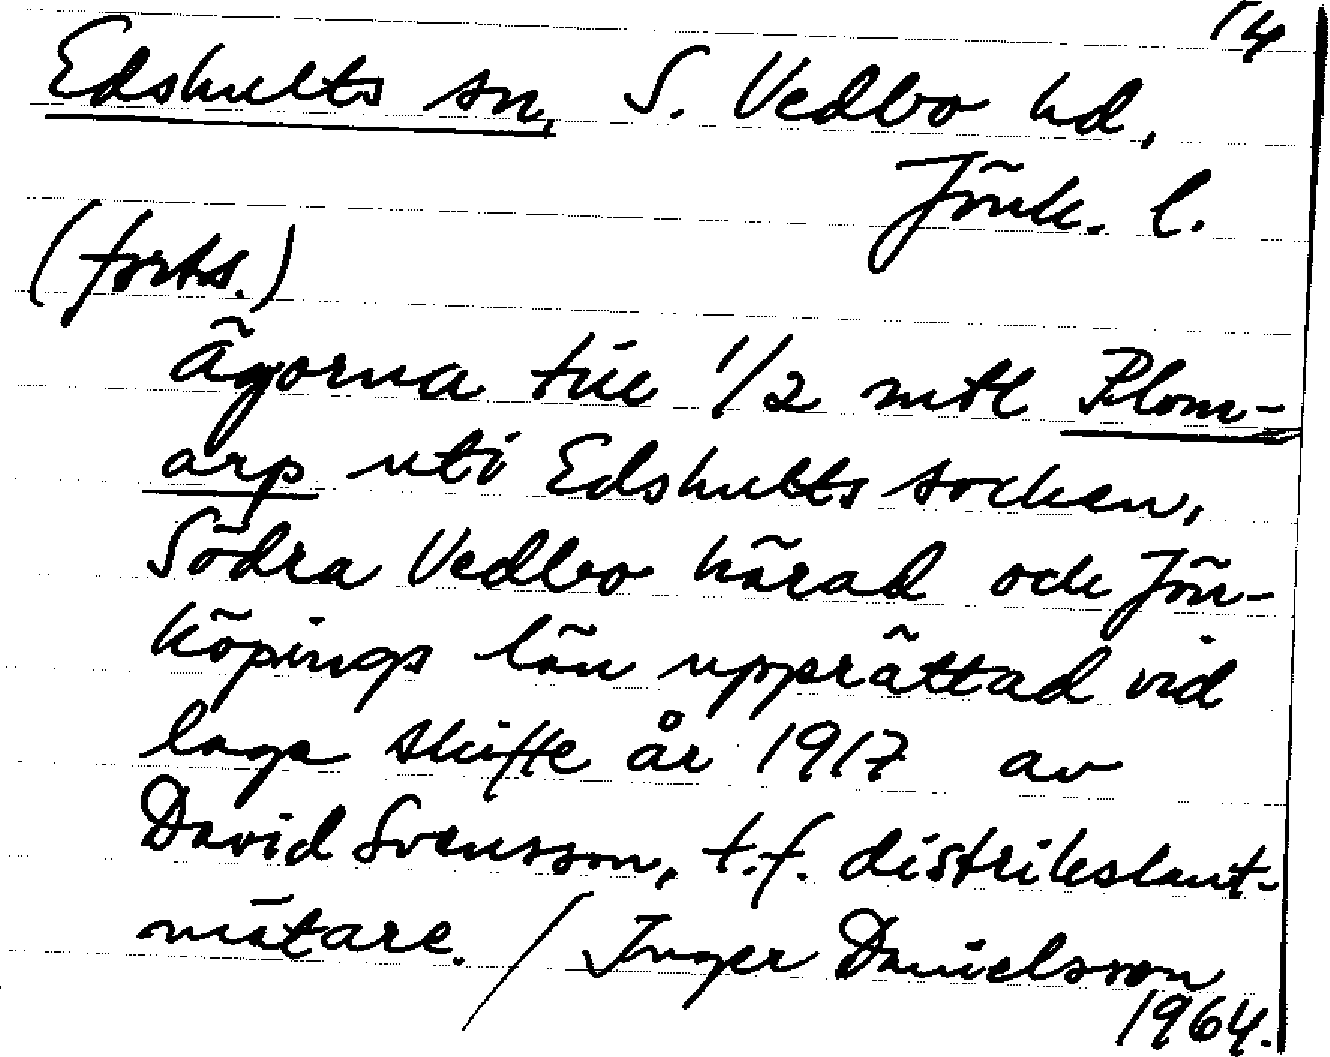 14
Edshults sn, S. Vedbo hd,
Jönk. l.
(forts.)
Ägorna till 1/2 mtl Plom-
arp uti Edshults socken,
Södra Vedbo härad och Jön-
köpings län upprättad vid
laga skifte år 1917 av
David Svensson, t.f. distrikslant-
mätare. / Inger Danielsson
1964.